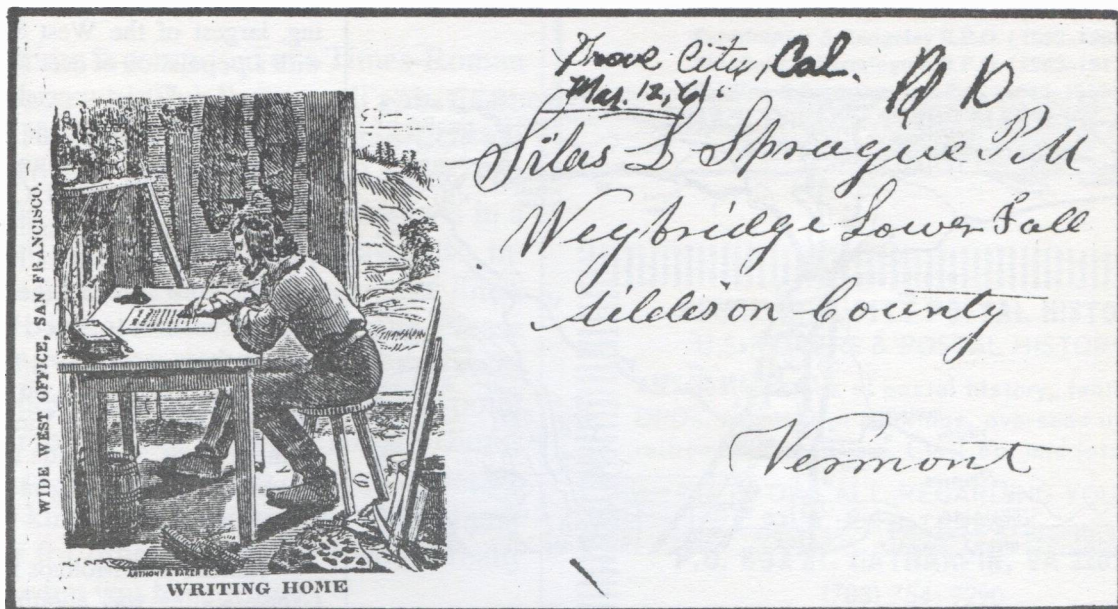 WIDE WEST OFFICE, SAN FRANCISCO.
ANTHONY & BAKER SC.
WRITING HOME
City, Cal.
Mar. 12,
Silas L Sprague P.M
Weybridge Lower Fall
Addison County
Vermont